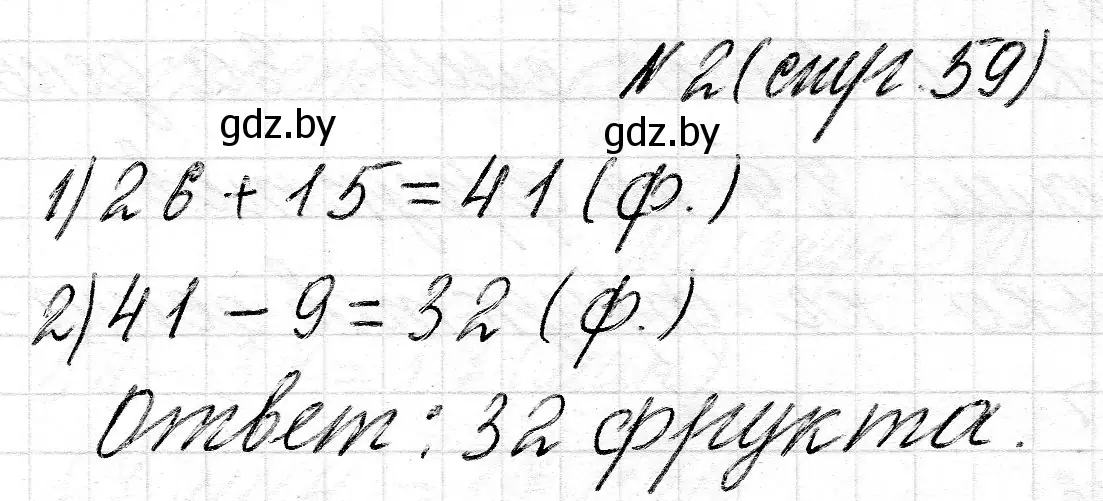 № 2 (стр. 59)
gdz.by gdz.by
1) 26 + 15 = 41 (ф.)
2) 41 - 9 = 32 (ф.)
Ответ: 32 фрукта.